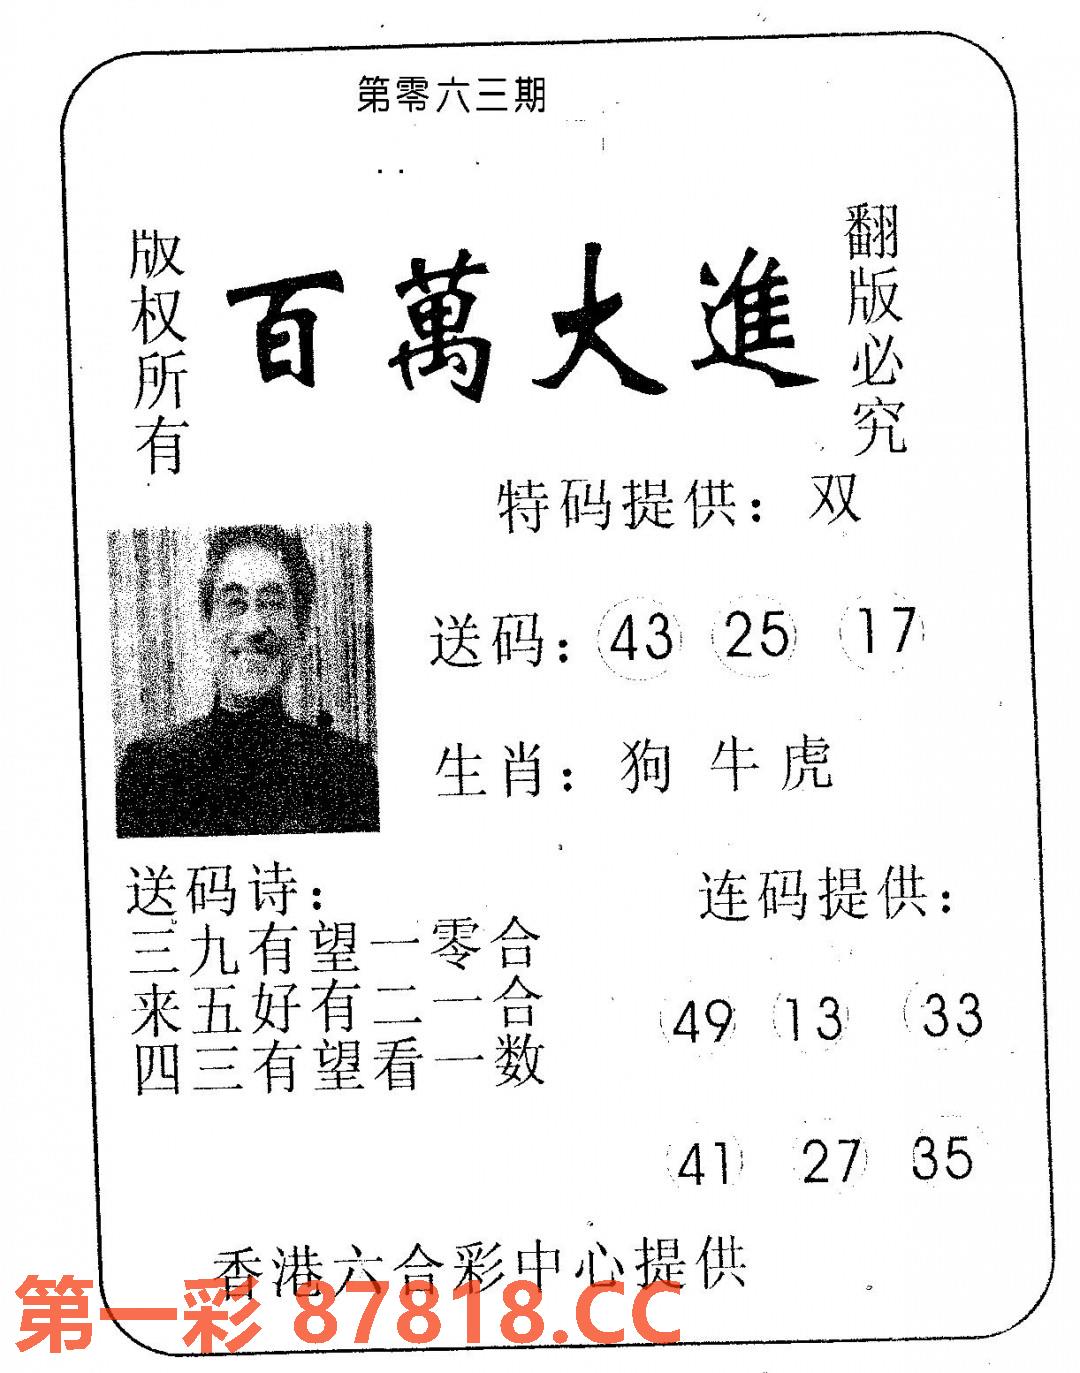 第零六三期
版权所有
百萬大進
翻版必究
特码提供：双
送码：43 25 17
生肖：狗 牛 虎
送码诗：
三九有望一零合
来五好有二一合
四三有望看一数
连码提供：
49 13 33
41 27 35
香港六合彩中心提供
第一彩 87818.CC